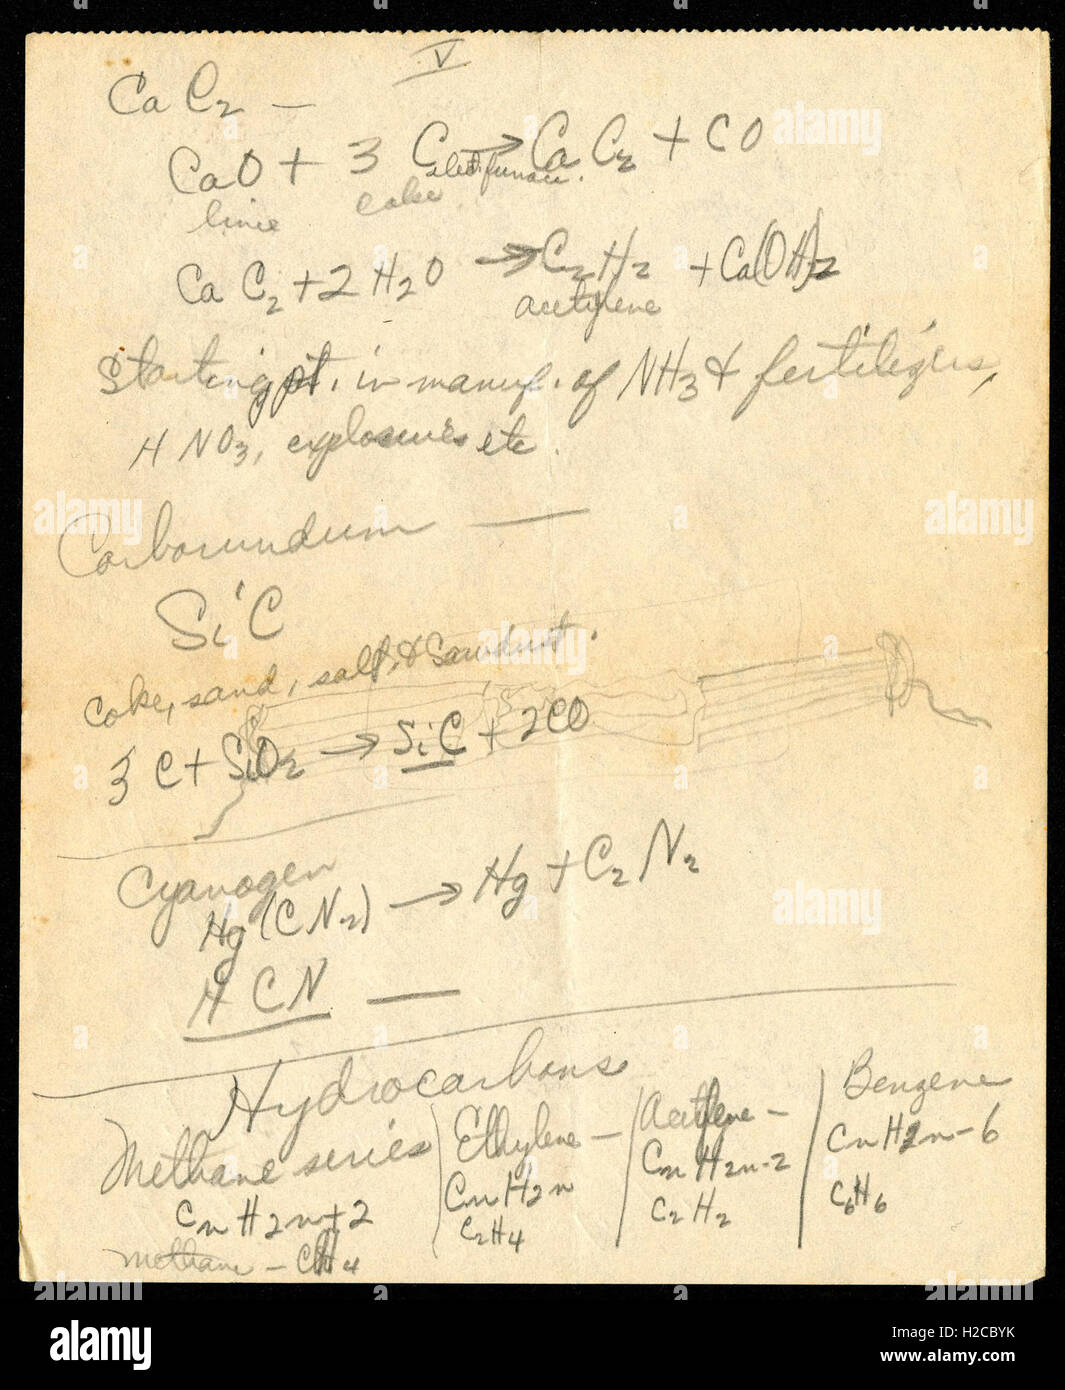 V
CaC2 —
CaO + 3 C → CaC2 + CO
lime coke elect. furnace.
CaC2 + 2 H2O → C2H2 + Ca(OH)2
acetylene
Starting pt. in manuf. of NH3 & fertilizers,
HNO3, explosives etc.
Carborundum —
SiC
Coke, sand, salt, & Sawdust.
3 C + SiO2 → SiC + 2CO
Cyanogen
Hg(CN2) → Hg + C2N2
HCN —
Hydrocarbons
Methane series | Ethylene — | Acetylene — | Benzene
CnH2n+2 | CnH2n | CnH2n-2 | CnH2n-6
methane — CH4 | C2H4 | C2H2 | C6H6
alamy
alamy
Image ID: H2CBYK
www.alamy.com